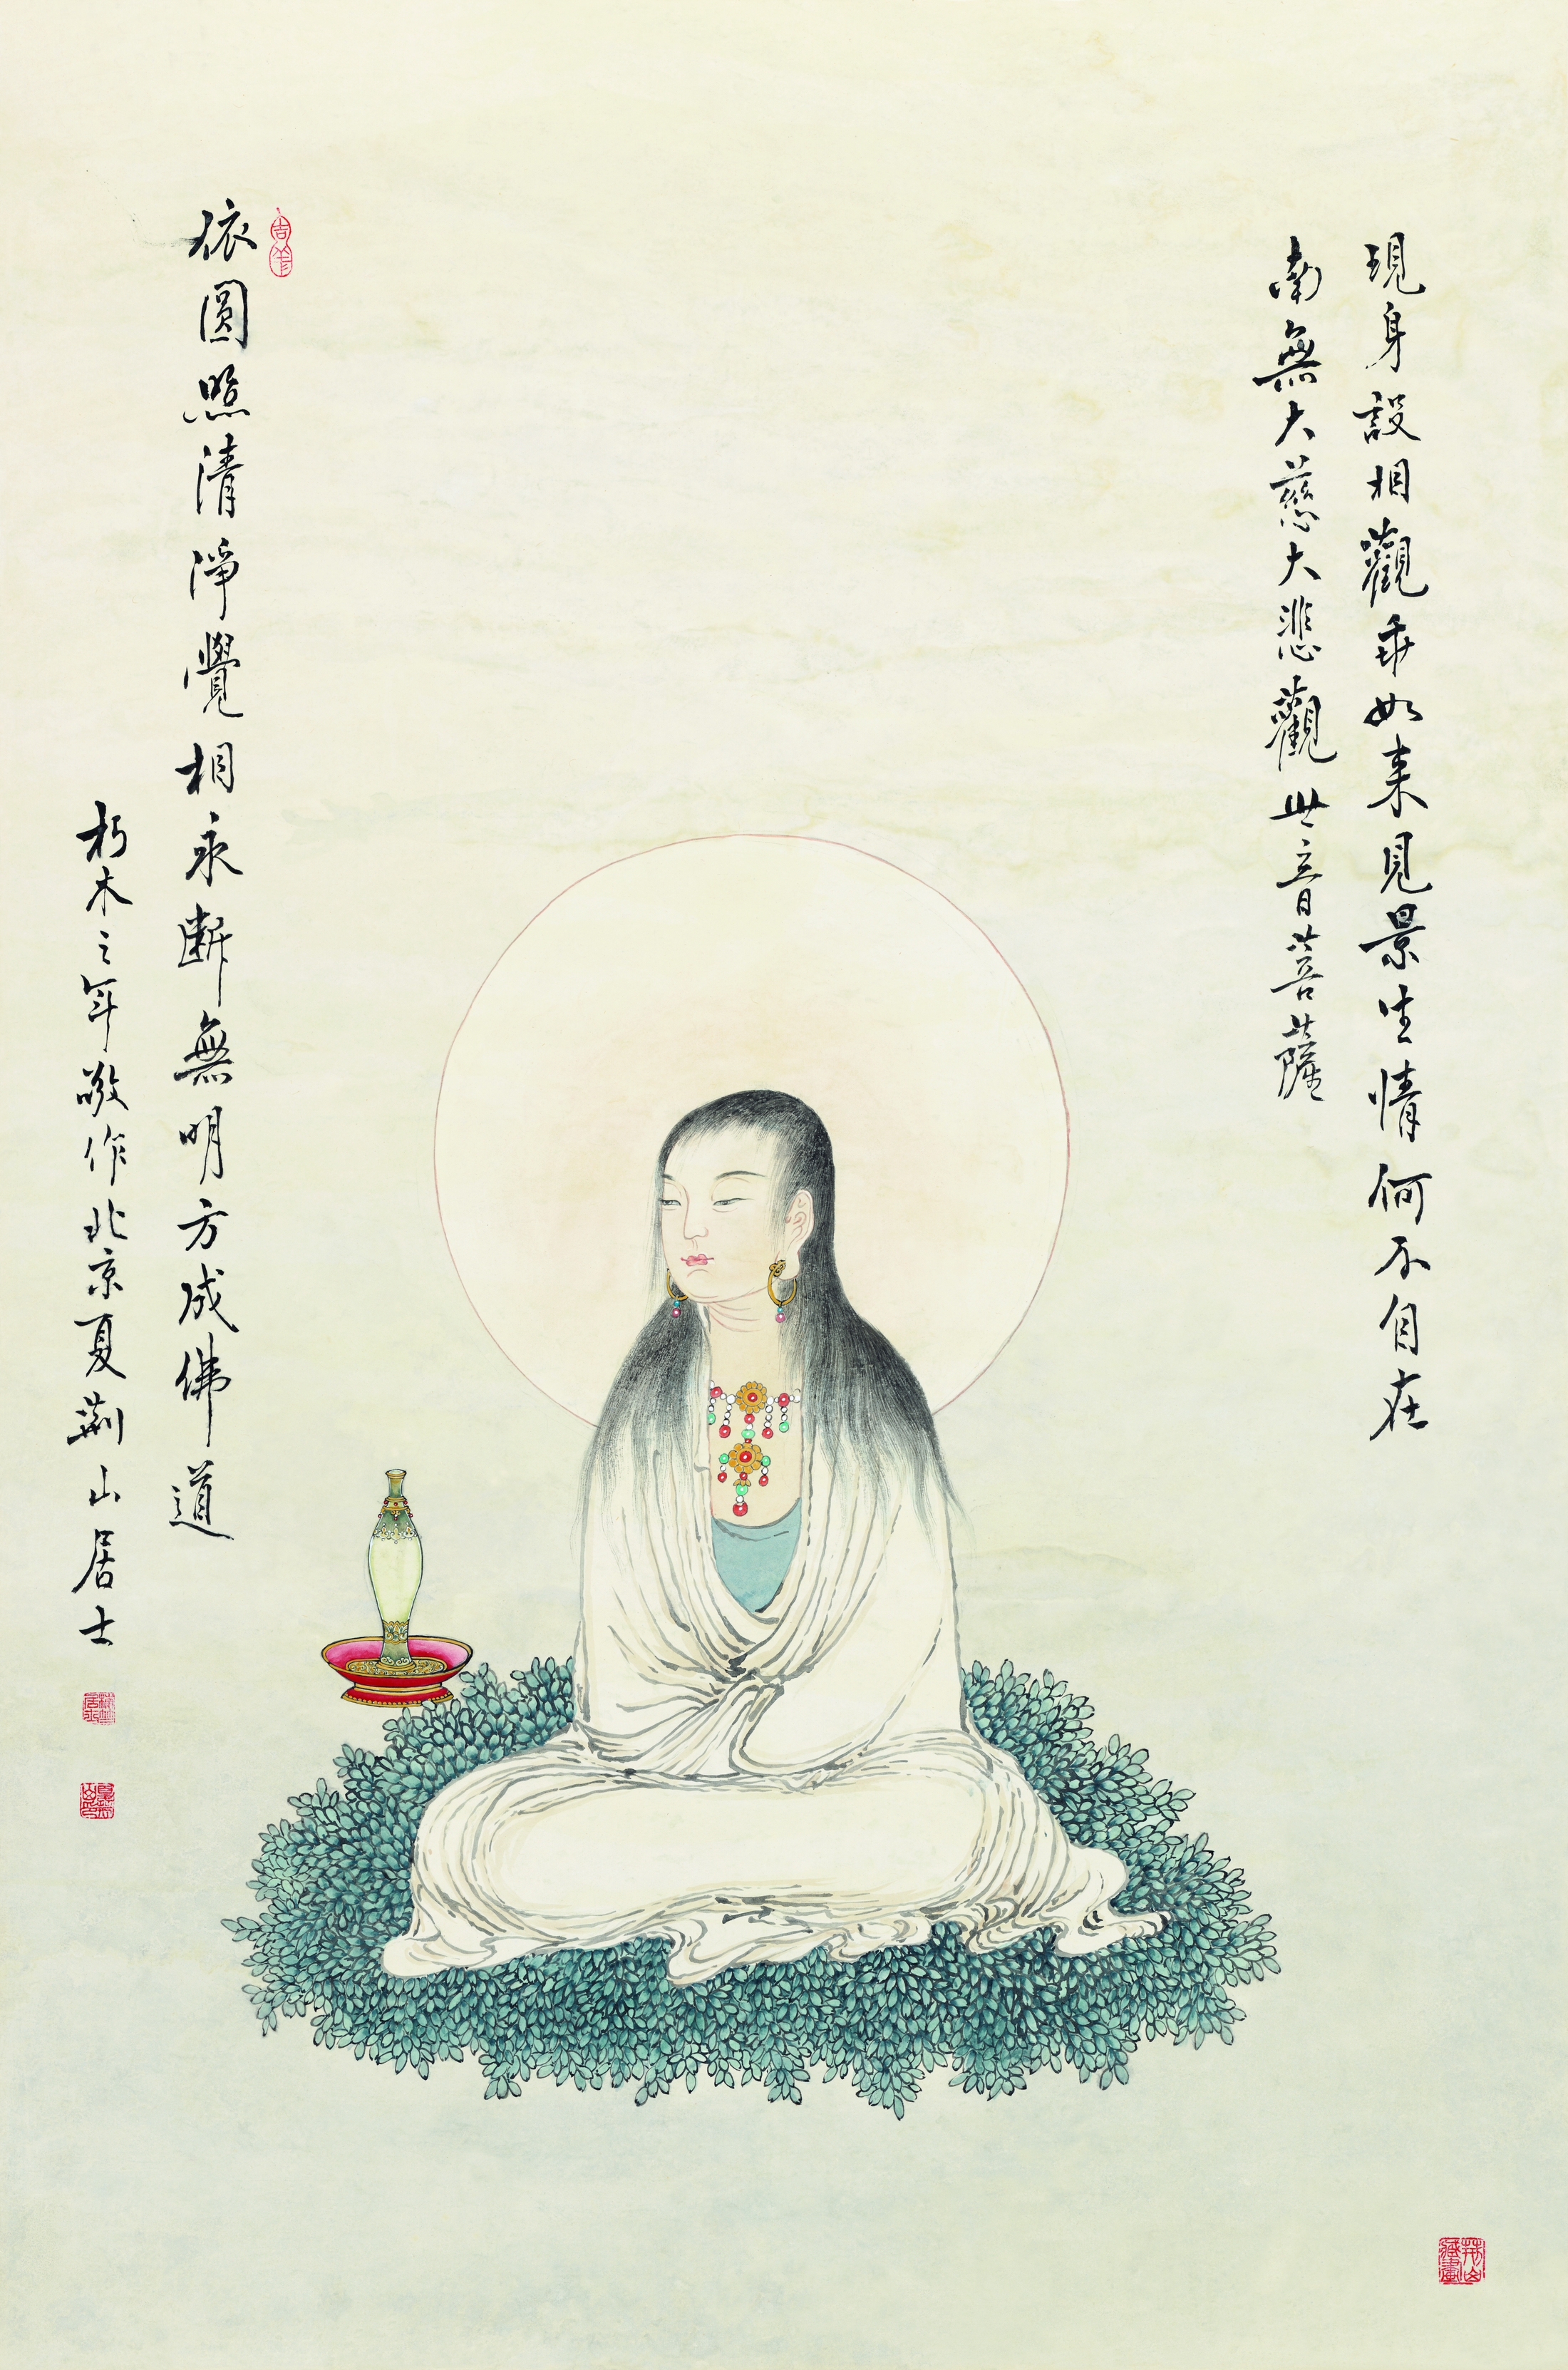 現身設相觀乖如来見景生情何不自在
南無大慈大悲觀世音菩薩
依圓照清淨覺相永断無明方成佛道
朽木之年敬作北京夏荆山居士